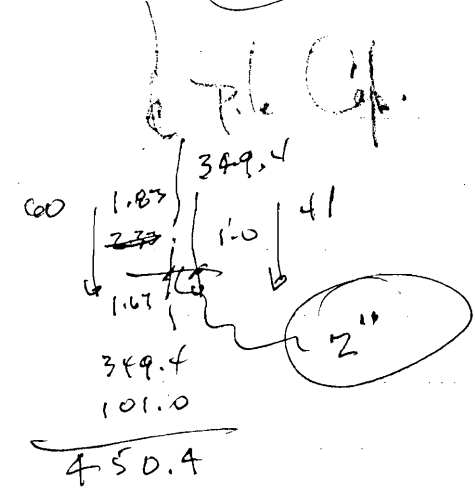 Pile Cap.
349.4
60 1.83 1.0 41
2.33
1.67
2"
349.4
101.0
450.4